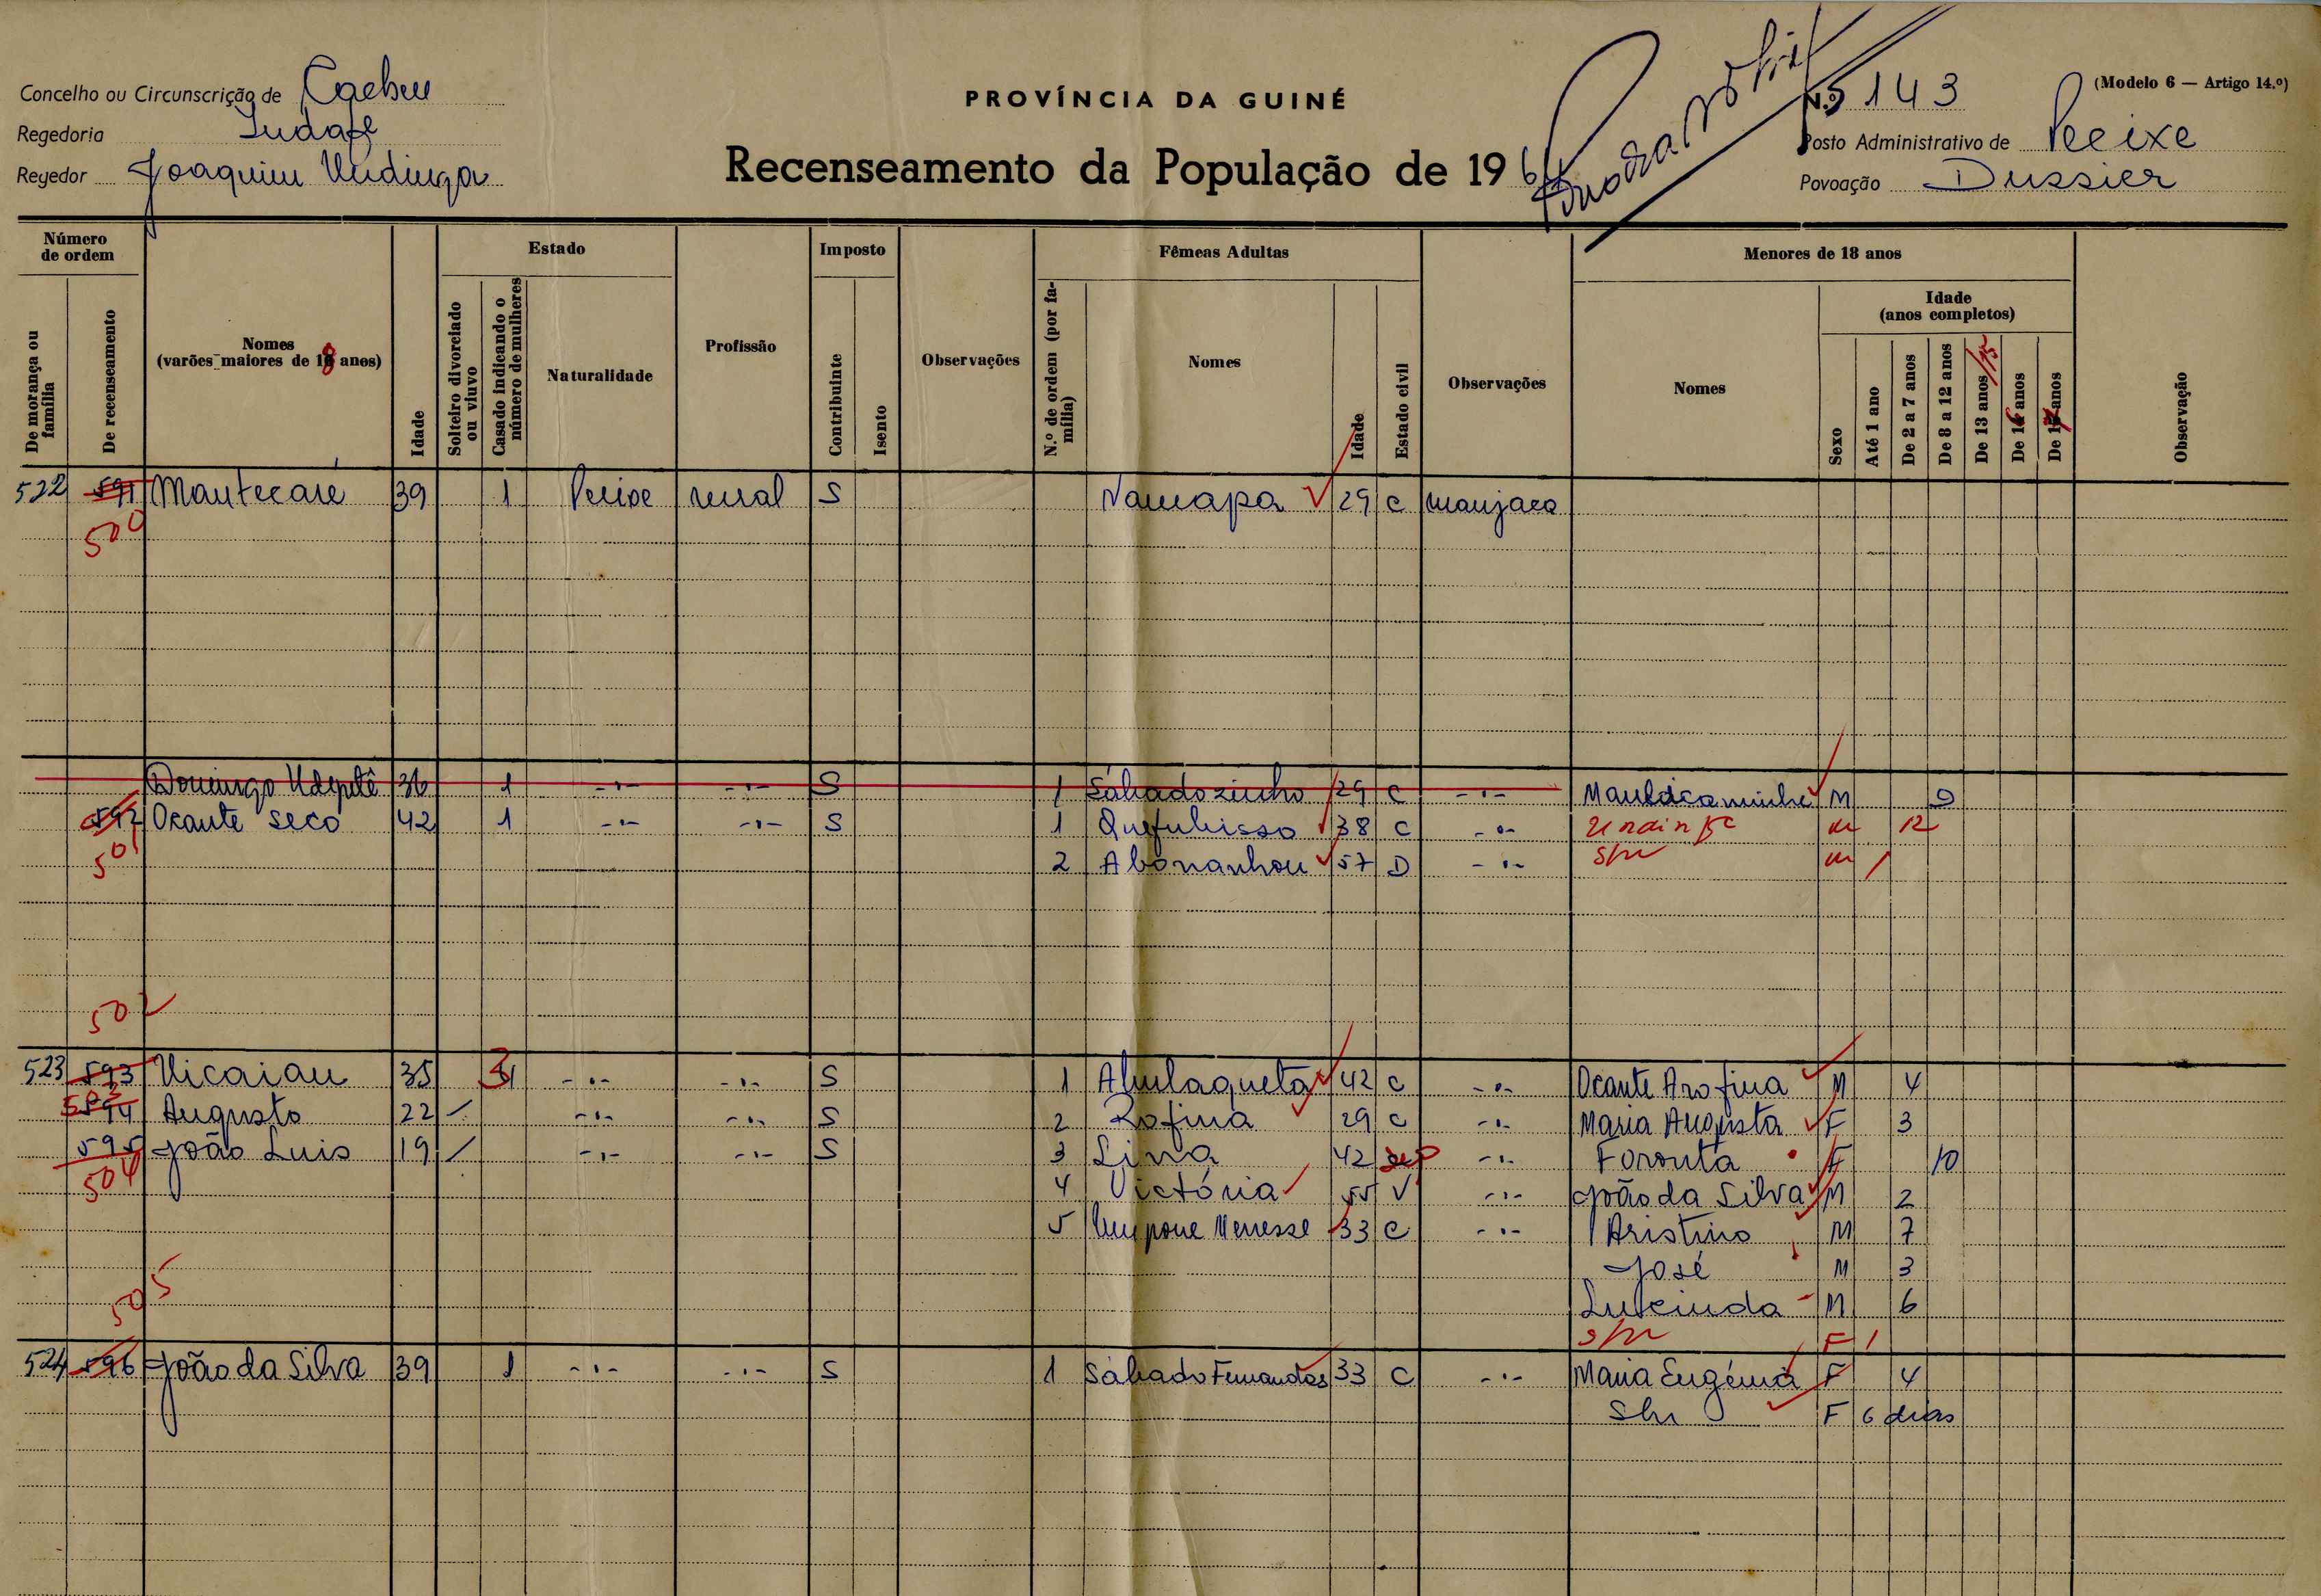 Concelho ou Circunscrição de Cacheu
PROVÍNCIA DA GUINÉ
N.º 5143
(Modelo 6 — Artigo 14.º)
Regedoria Indafe
Posto Administrativo de Peixe
Regedor Joaquim Undinga
Recenseamento da População de 196
Povoação Dussier
Número de ordem
De morança ou família
De recenseamento
Nomes (varões maiores de 18 anos)
Idade
Estado
Solteiro divorciado ou viuvo
Casado indicando o número de mulheres
Naturalidade
Profissão
Imposto
Contribuinte
Isento
Observações
Fêmeas Adultas
N.º de ordem (por família)
Nomes
Idade
Estado civil
Observações
Menores de 18 anos
Nomes
Idade (anos completos)
Sexo
Até 1 ano
De 2 a 7 anos
De 8 a 12 anos
De 13 anos /15
De 16 anos
De 17 anos
Observação
522 591 Mantecare 39 1 Peixe rural S Namapa 29 C manjaco
500
Domingo Udeputê 36 1 -"- -"- S 1 Sábadozinho 29 C -"- M 9
592 Ocante Seco 42 1 -"- -"- S 1 Quefubisso 38 C -"- m 12
501 2 Abonanhou 57 D -"- s/n m 1
502
523 593 Vicaiau 35 3 -"- -"- S 1 Abulaqueta 42 C -"- Ocante Arofina M 4
503 594 Augusto 22 -"- -"- S 2 Rofina 29 C -"- Maria Augusta F 3
595 João Luis 19 -"- -"- S 3 Lina 42 sep -"- Foronta F 10
504 4 Victória 55 V -"- João da Silva M 2
5 Umpone Menesse 33 C -"- Aristino M 7
José M 3
505 Lucinda M 6
s/n F 1
524 596 João da Silva 39 1 -"- -"- S 1 Sábado Fernandes 33 C -"- Maria Eugénia F 4
S/n F 6 dias